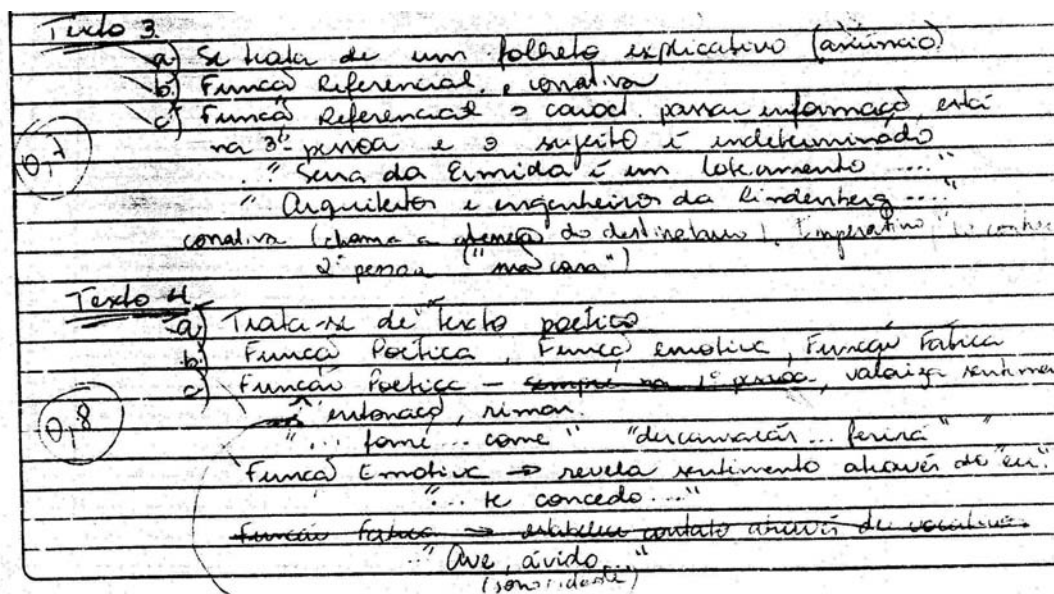 Texto 3
a) Se trata de um folheto explicativo (anúncio)
b) Função Referencial, e conativa
c) Função Referencial → caract. passar informação, está
na 3ª pessoa e o sujeito é indeterminado
0,7
"Serra da Ermida é um loteamento ...."
"Arquitetos e engenheiros da Lindenberg ...."
conativa (chama a atenção do destinatário), Imperativo
2ª pessoa ("sua casa")
Texto 4
a) Trata-se de texto poético
b) Função Poética, Função emotiva, Função Fática
c) Função Poética - sempre na 1ª pessoa, valoriza sentimen
entonação, rimas.
0,8
"... fome ... come" "descansarás ... ferirá"
Função Emotiva → revela sentimento através do "eu".
"... te concedo ..."
Função Fática → estabelece contato através de vocativos.
"Ave, ávido..."
(sonoridade)